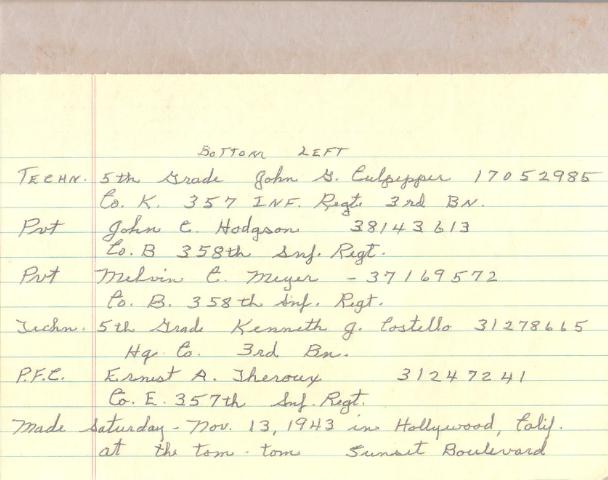 BOTTOM LEFT
TECHN. 5th Grade John G. Culpepper 17052985
Co. K. 357 INF. Regt. 3rd BN.
Pvt John C. Hodgson 38143613
Co. B 358th Inf. Regt.
Pvt Melvin C. Meyer - 37169572
Co. B. 358th Inf. Regt.
Techn. 5th Grade Kenneth J. Costello 31278665
Hq. Co. 3rd Bn.
P.F.C. Ernest A. Theroux 31247241
Co. E. 357th Inf. Regt.
Made Saturday - Nov. 13, 1943 in Hollywood, Calif.
at the tom - tom Sunset Boulevard